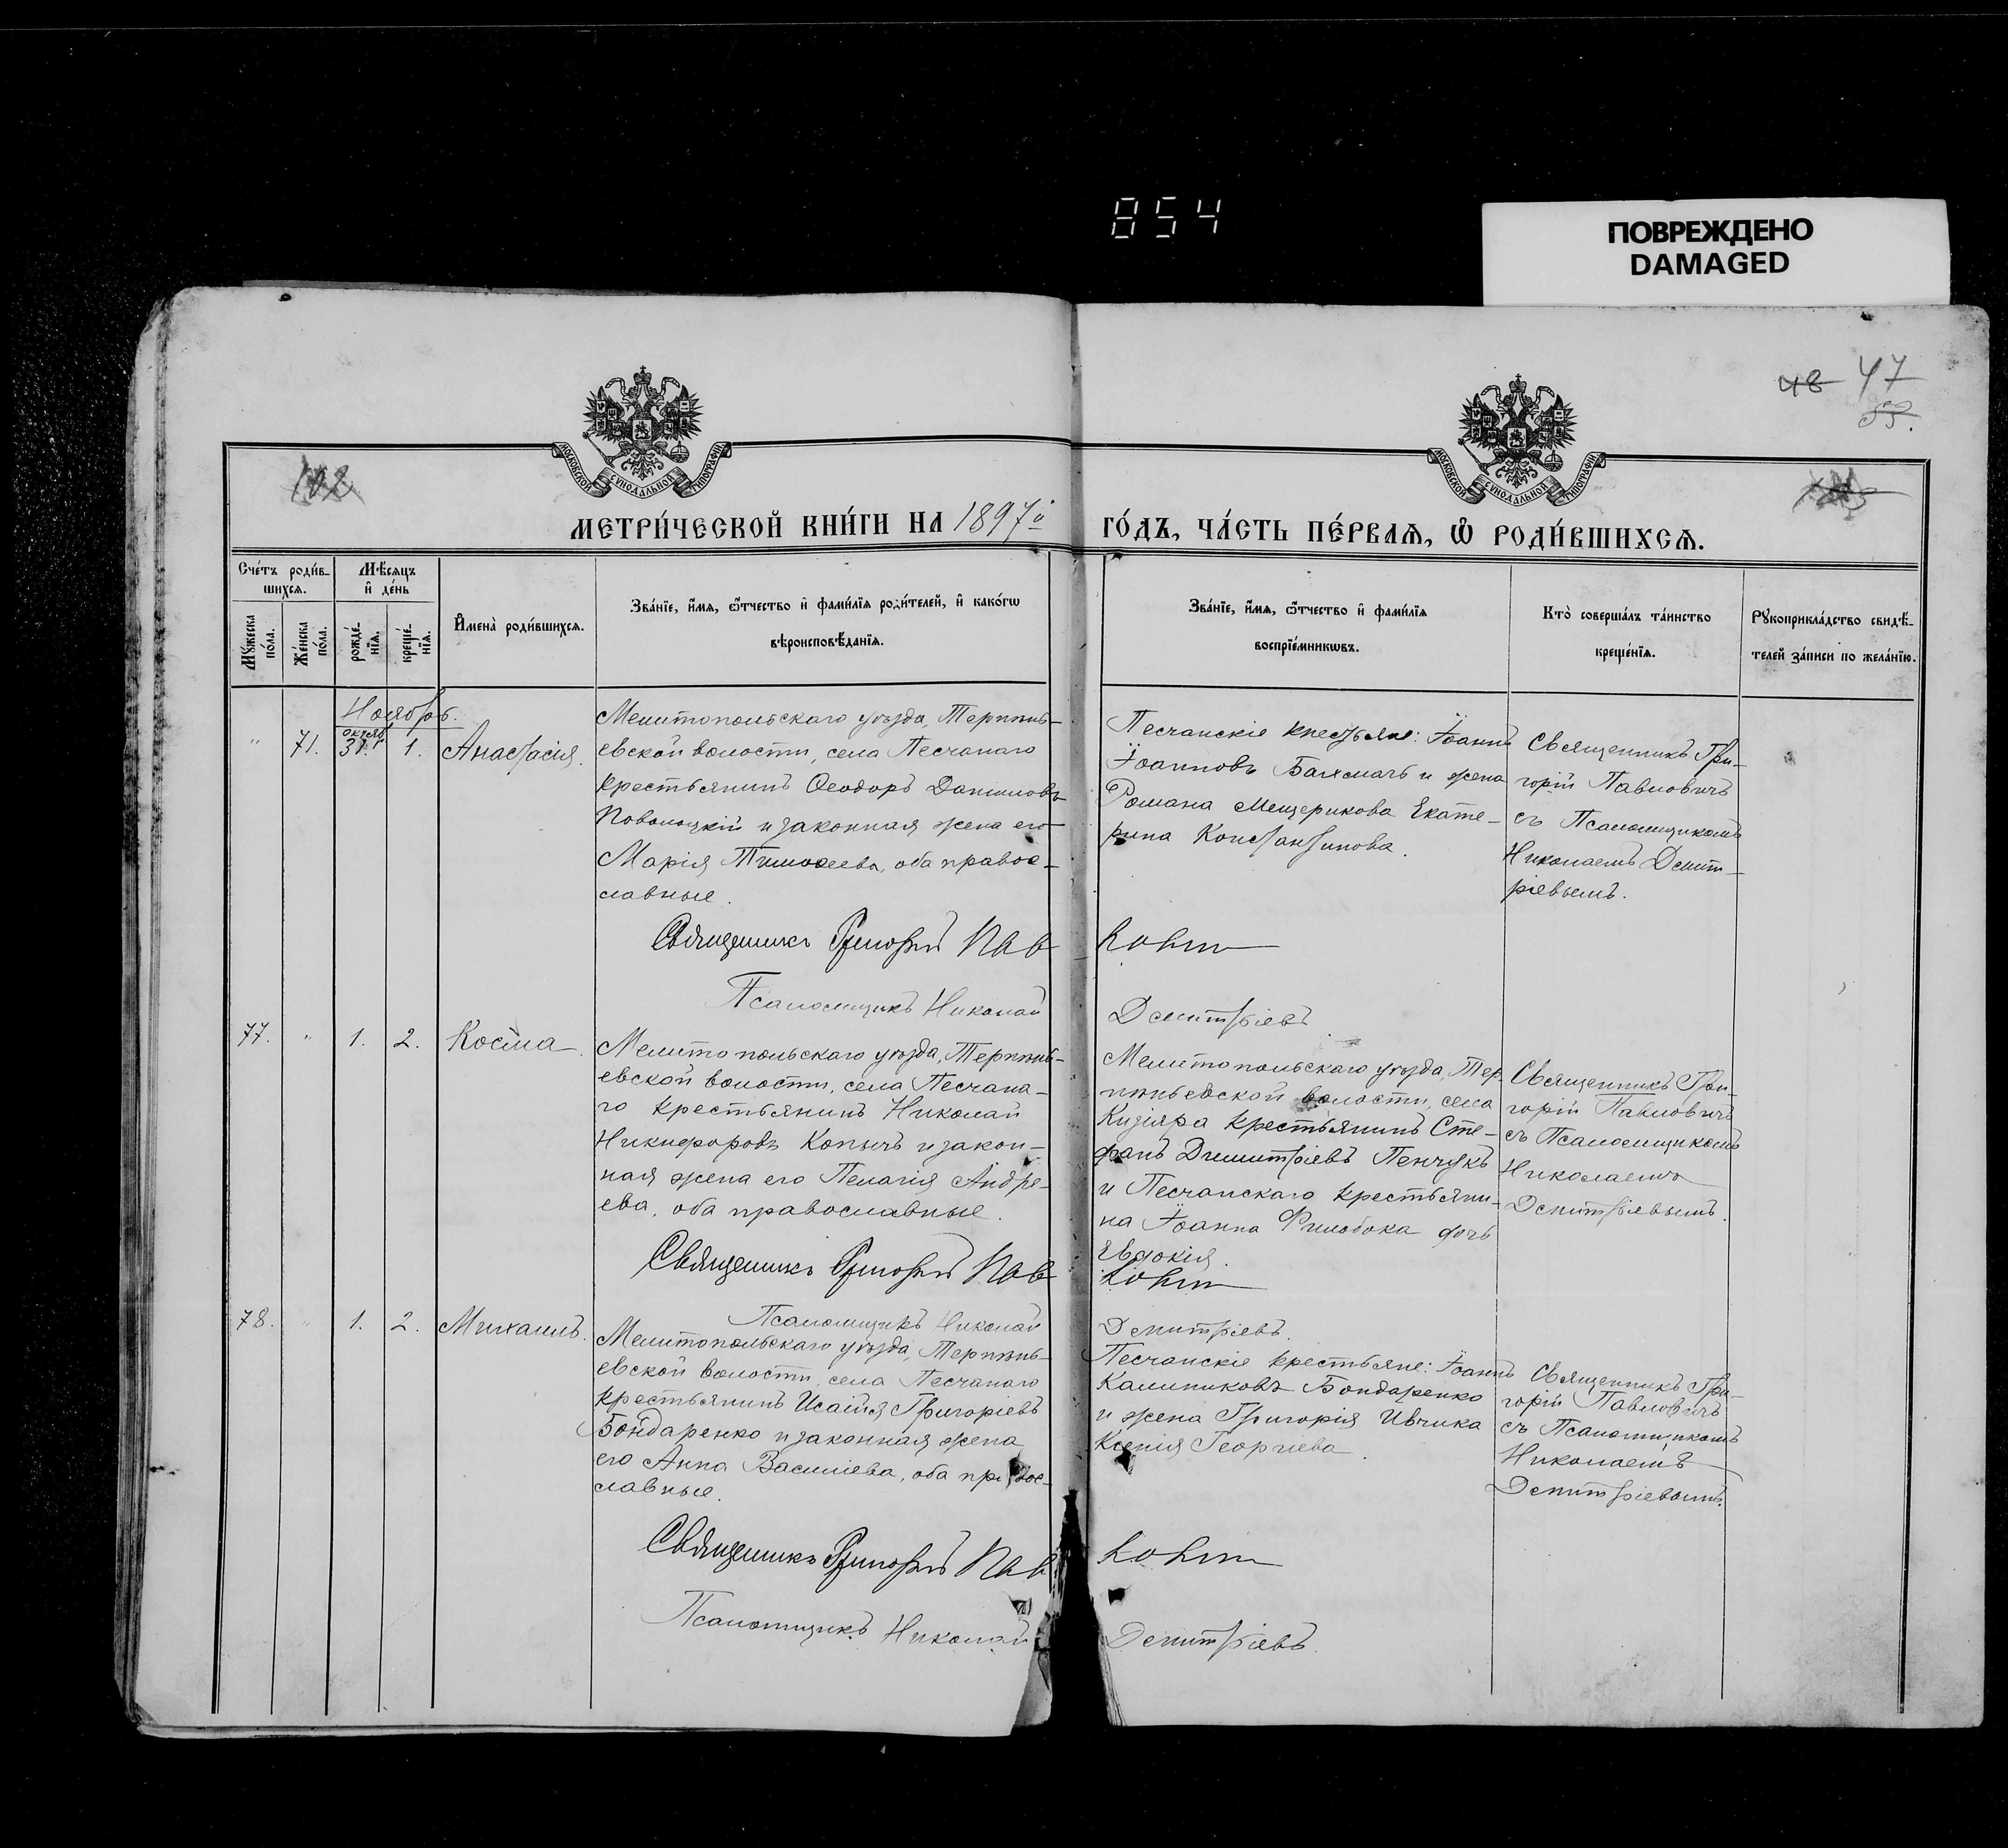 854
ПОВРЕЖДЕНО
DAMAGED
48 47
МОСКОВСКОЙ СѴНОДАЛЬНОЙ ТИПОГРАФІИ
МОСКОВСКОЙ СѴНОДАЛЬНОЙ ТИПОГРАФІИ
102
МЕТРИ́ЧЕСКОЙ КНИ́ГИ НА 1897й
ГО́ДЪ, ЧА́СТЬ ПЕ́РВАѦ, Ѿ РОДИ́ВШИХСѦ.
Сче́тъ роди́в-
шихсѧ.
Мꙋ́жеска по́ла.
Же́нска по́ла.
Мѣ́сяцъ
и҆ де́нь
рожде́-
нїѧ.
креще́-
нїѧ.
И҆мена̀ роди́вшихсѧ.
Зва́нїе, и҆́мѧ, ѻ҆́тчество и҆ фами́лїѧ роди́телей, и҆ како́гѡ
вѣроисповѣ́данїѧ.
Зва́нїе, и҆́мѧ, ѻ҆́тчество и҆ фами́лїѧ
воспрїе́мникѡвъ.
Кто̀ соверша́лъ та́инство
креще́нїѧ.
Рꙋкоприкла́дство свидѣ́-
телей за́писи по жела́нїю.
Ноябрь.
" 71. октяб. 31. 1. Анастасія.
Мелитопольскаго уѣзда, Терпѣнь-
евской волости, села Песчанаго
крестьянинъ Ѳеодоръ Даниловъ
Поволоцкій и законная жена его
Марія Тимоѳеева, оба правос-
лавные.
Песчанскіе крестьяне: Іоаннъ
Іоанновъ Бахмачъ и жена
Романа Мещерикова Екате-
рина Константинова.
Священникъ Гри-
горій Павловичъ
съ Псаломщикомъ
Николаемъ Демит-
ріевымъ.
Священникъ Григорій Пав
ловичъ
Псаломщикъ Николай
Демитріевъ
77. " 1. 2. Косма.
Мелитопольскаго уѣзда, Терпѣнь-
евской волости, села Песчана-
го крестьянинъ Николай
Никифоровъ Копычъ и закон-
ная жена его Пелагія Андре-
ева, оба православные.
Мелитопольскаго уѣзда, Тер-
пѣньевской волости, села
Кизіяра крестьянинъ Сте-
фанъ Димитріевъ Пенчукъ
и Песчанскаго крестьяни-
на Іоанна Филобока дочь
Евдокія.
Священникъ Гри-
горій Павловичъ
съ Псаломщикомъ
Николаемъ
Демитріевымъ.
Священникъ Григорій Пав
ловичъ
Псаломщикъ Николай
Демитріевъ.
78. " 1. 2. Михаилъ.
Мелитопольскаго уѣзда, Терпѣнь-
евской волости, села Песчанаго
крестьянинъ Исаія Григоріевъ
Бондаренко и законная жена
его Анна Василіева, оба правос-
лавные.
Песчанскіе крестьяне: Іоаннъ
Калиниковъ Бондаренко
и жена Григорія Ивчика
Ксенія Георгіева.
Священникъ Гри-
горій Павловичъ
съ Псаломщикомъ
Николаемъ
Демитріевымъ.
Священникъ Григорій Пав
ловичъ
Псаломщикъ Николай
Демитріевъ.